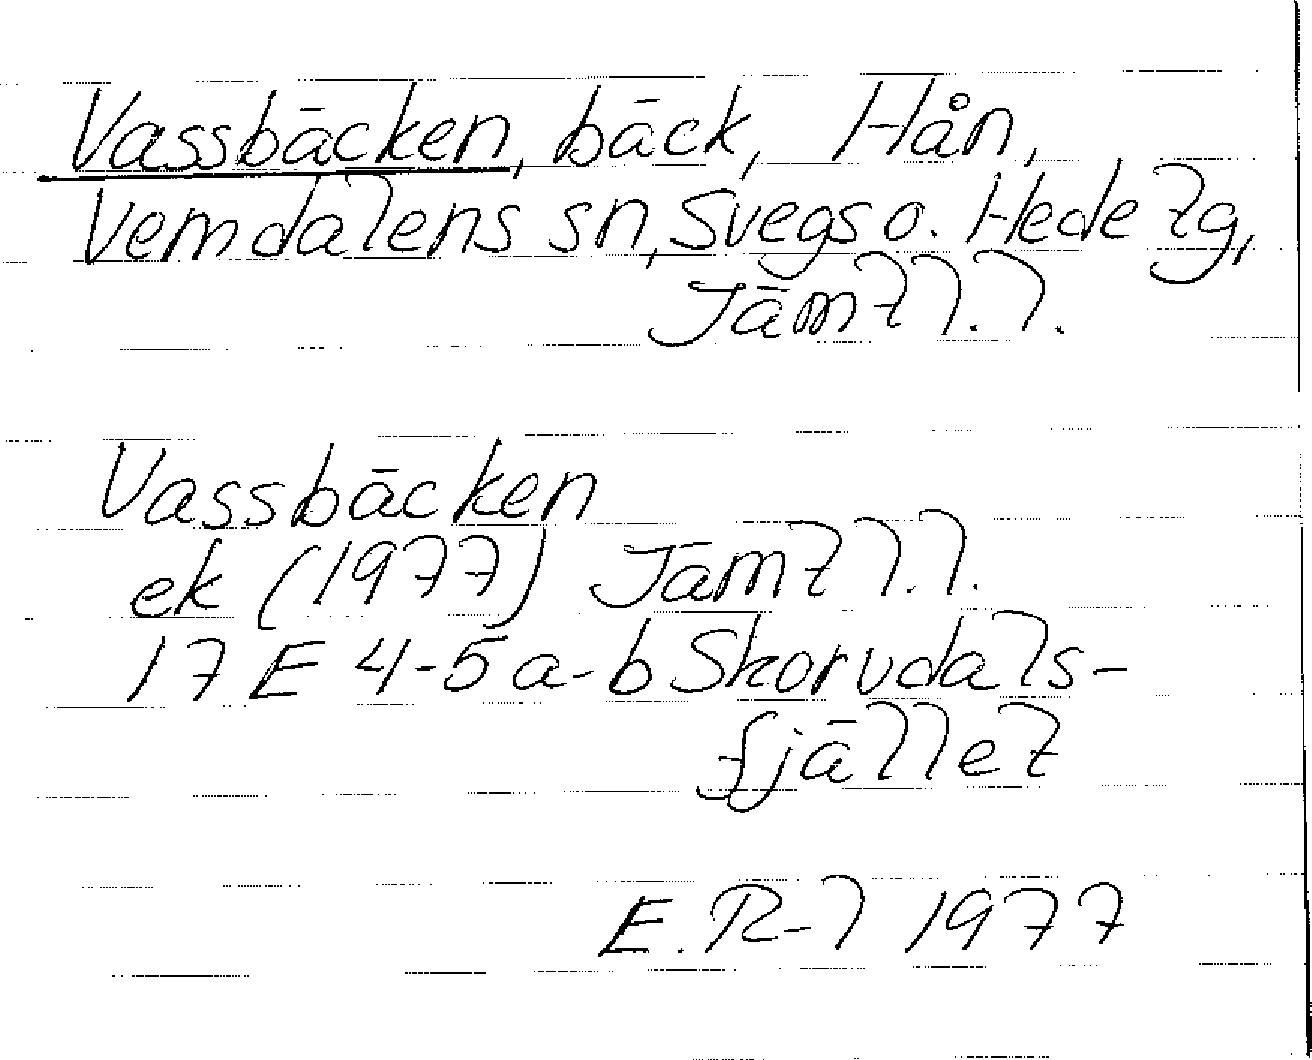 Vassbäcken, bäck, Hån,
Vemdalens sn, Svegs o. Hede tg,
Jämtl. l.
Vassbäcken
ek (1977) Jämtl. l.
17 E 4-5 a-b Skorvdals-
fjället
E. R-l 1977